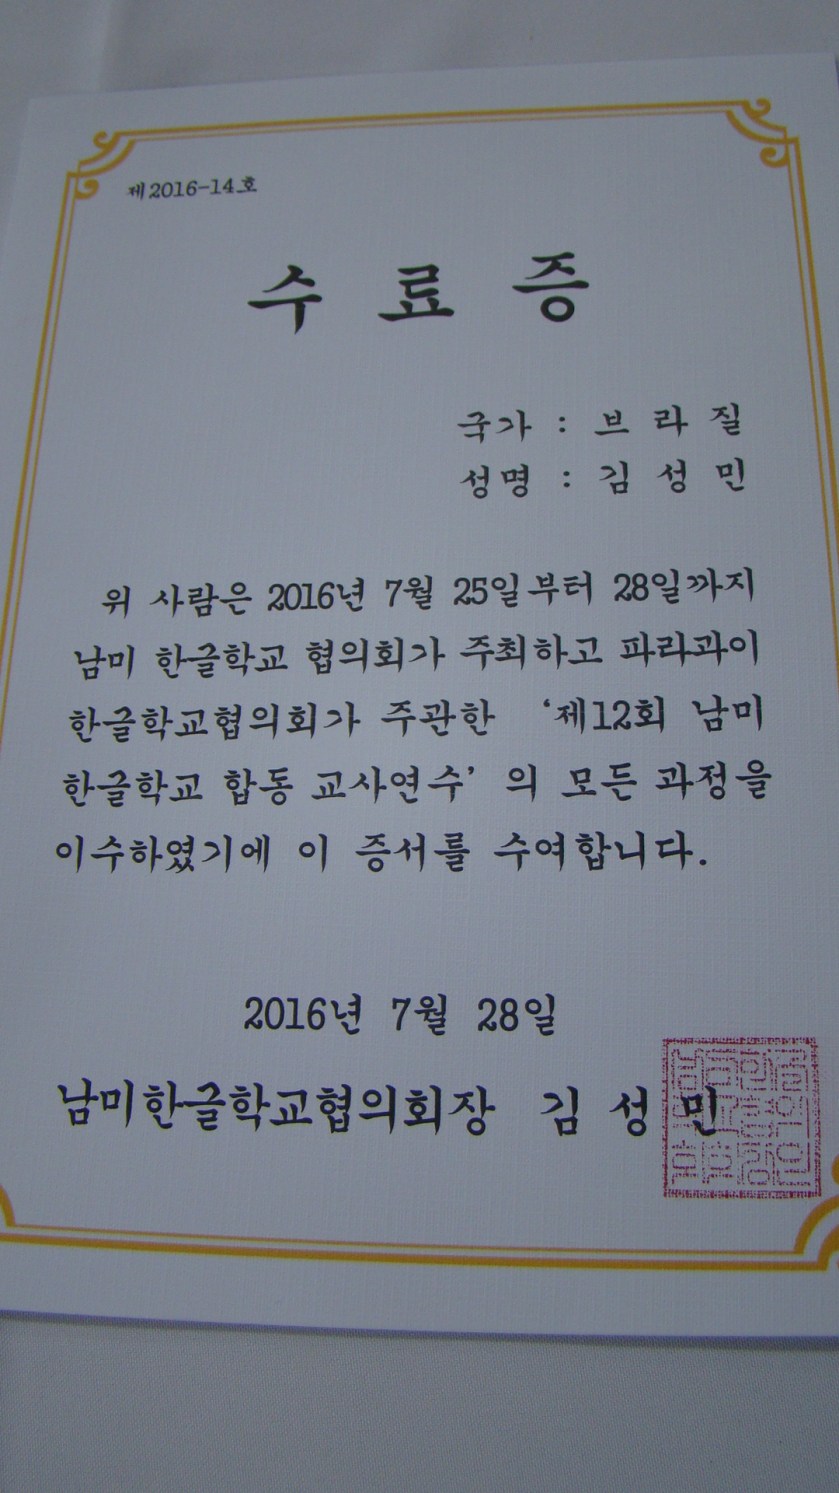 제2016-14호
수 료 증
국가 : 브 라 질
성명 : 김 성 민
위 사람은 2016년 7월 25일부터 28일까지
남미 한글학교 협의회가 주최하고 파라과이
한글학교협의회가 주관한 ‘제12회 남미
한글학교 합동 교사연수’ 의 모든 과정을
이수하였기에 이 증서를 수여합니다.
2016년 7월 28일
남미한글학교협의회장 김 성 민